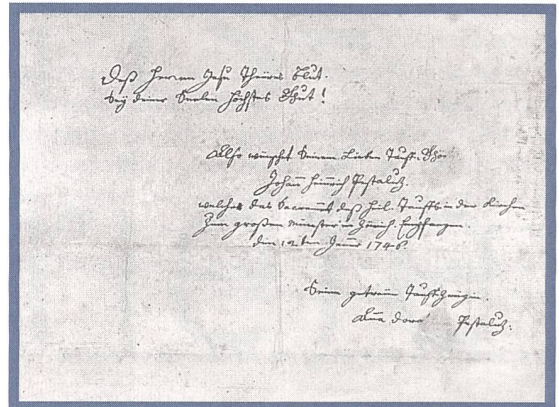 Deß Herren Jesu Theures Blut.
Sey deiner Seelen höchstes Guht!
Also wünschet Seinem Lieben Tauff-
Johañ Heinrich Pestaluz.
welcher das Sacrament deß Heil. Tauffs in der Kirchen
Zum großen Münster in Zürich. Empfangen.
den 12ten Jenner 1746.
Seine getreue Tauffzeügin.
Añа Dor. Pestaluz.